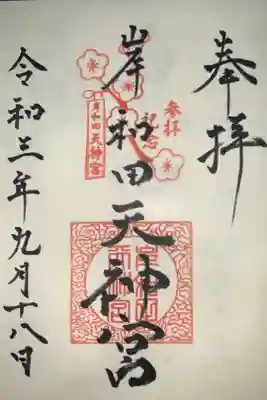 奉拝
岸和田天神宮
参拝
記念
岸和田天神宮
令和三年九月十八日